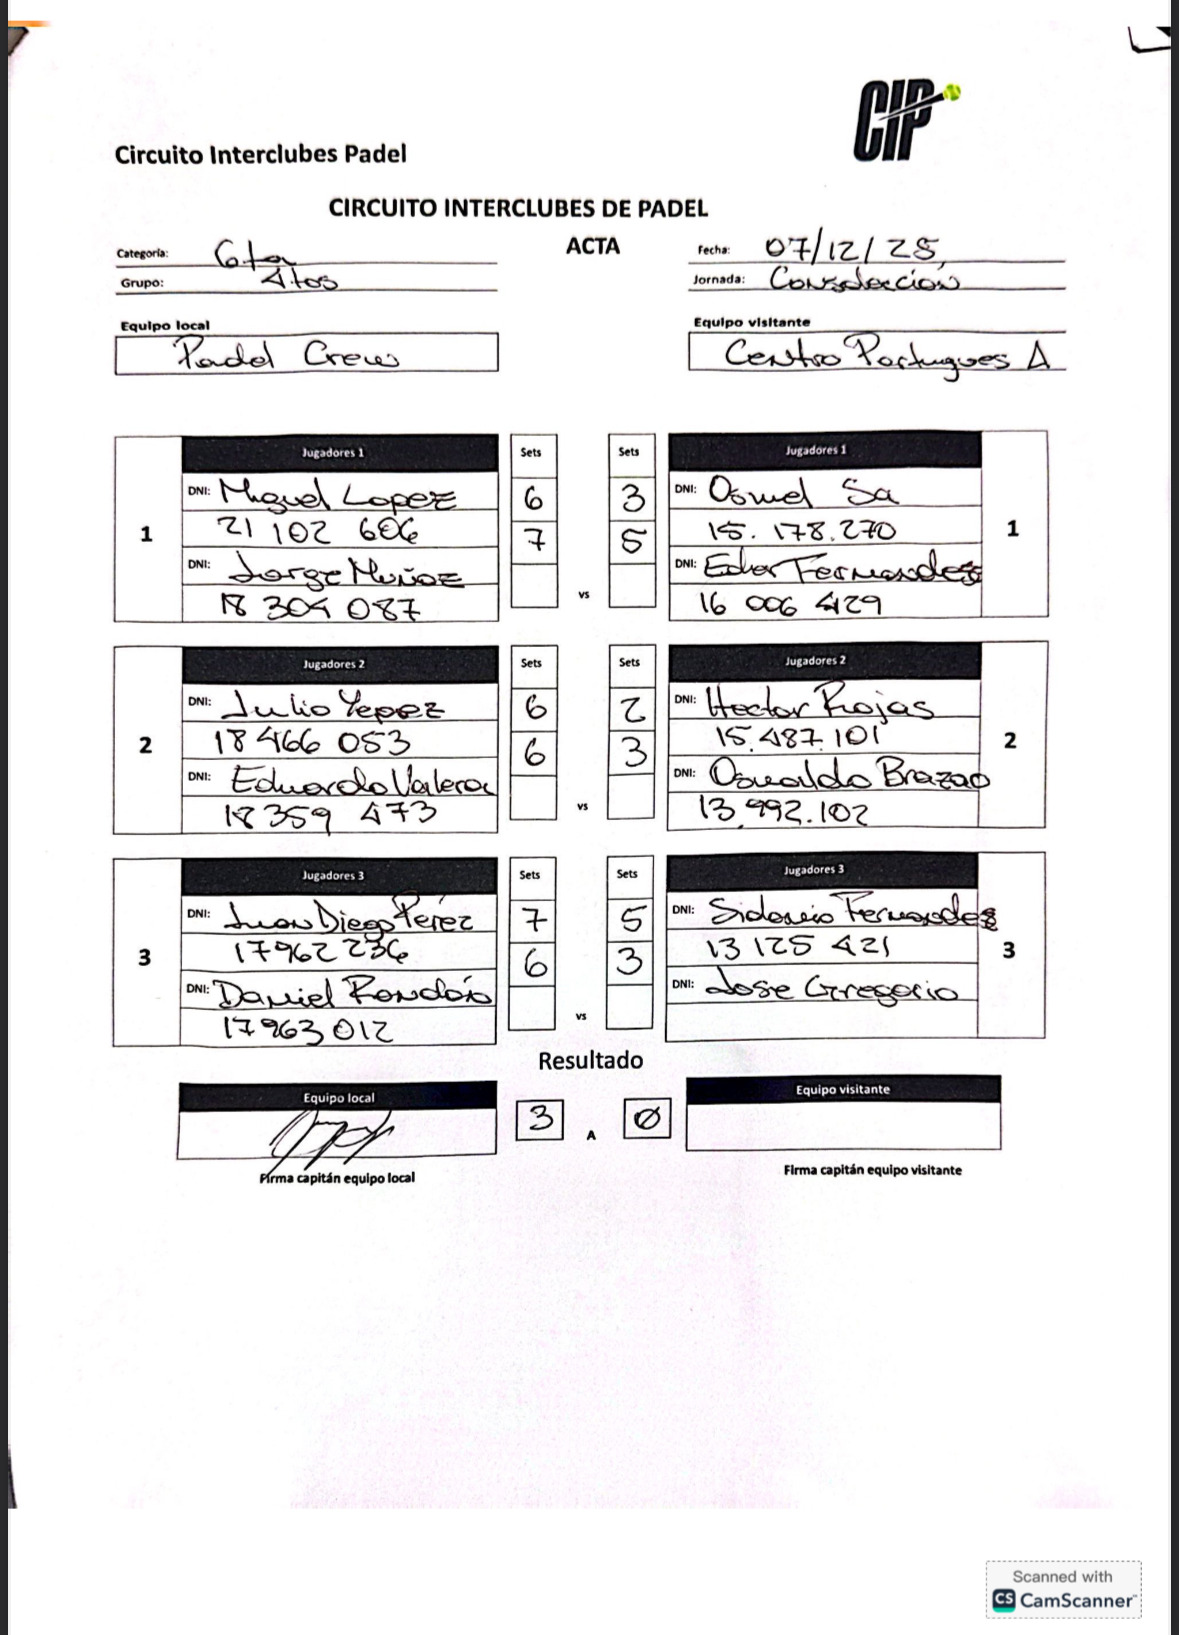 CIP
Circuito Interclubes Padel
CIRCUITO INTERCLUBES DE PADEL
ACTA
Categoría: 6ta
Grupo: 4tos
Fecha: 07/12/25
Jornada: Consolación
Equipo local
Padel Crew
Equipo visitante
Centro Portugues A
1
Jugadores 1 Sets
DNI: Miguel Lopez 6
21 102 606 7
DNI: Jorge Muñoz
18 304 087
vs
Sets Jugadores 1
3 DNI: Osmel Sa
5 15.178.270
DNI: Eder Fernandes
16 006 429
1
2
Jugadores 2 Sets
DNI: Julio Yepez 6
18 466 053 6
DNI: Eduardo Valera
18 359 473
vs
Sets Jugadores 2
2 DNI: Hector Rojas
3 15.487.101
DNI: Oswaldo Brazao
13.992.102
2
3
Jugadores 3 Sets
DNI: Juan Diego Pérez 7
17962 236 6
DNI: Daniel Rondón
17963 012
vs
Sets Jugadores 3
5 DNI: Sidonio Fernandes
3 13 125 421
DNI: Jose Gregorio
3
Resultado
Equipo local
3 A 0
Equipo visitante
Firma capitán equipo local
Firma capitán equipo visitante
Scanned with
CS CamScanner